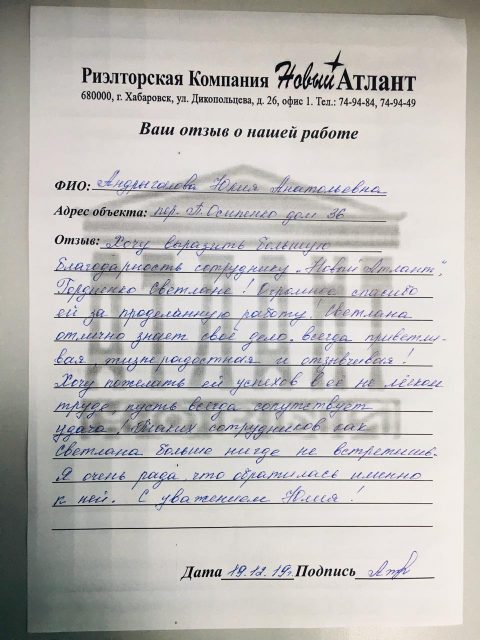 Риэлторская Компания Новый Атлант
680000, г. Хабаровск, ул. Дикопольцева, д. 26, офис 1. Тел.: 74-94-84, 74-94-49
Ваш отзыв о нашей работе
ФИО: Юлия Анатольевна
Адрес объекта: пер. П.Осипенко дом 36
Отзыв: Хочу выразить большую
Благодарность сотруднику „Новый Атлант",
Гордиенко Светлане! Огромное спасибо
ей за проделанную работу! Светлана
отлично знает своё дело. всегда приветли-
вая жизнерадостная и отзывчивая!
Хочу пожелать ей успехов в её не лёгком
труде, пусть всегда сопутствует
удача! Таких сотрудников как
Светлана больше нигде не встретишь.
Я очень рада что обратилась именно
к ней. С уважением Юлия!
Дата 19.12.19г Подпись